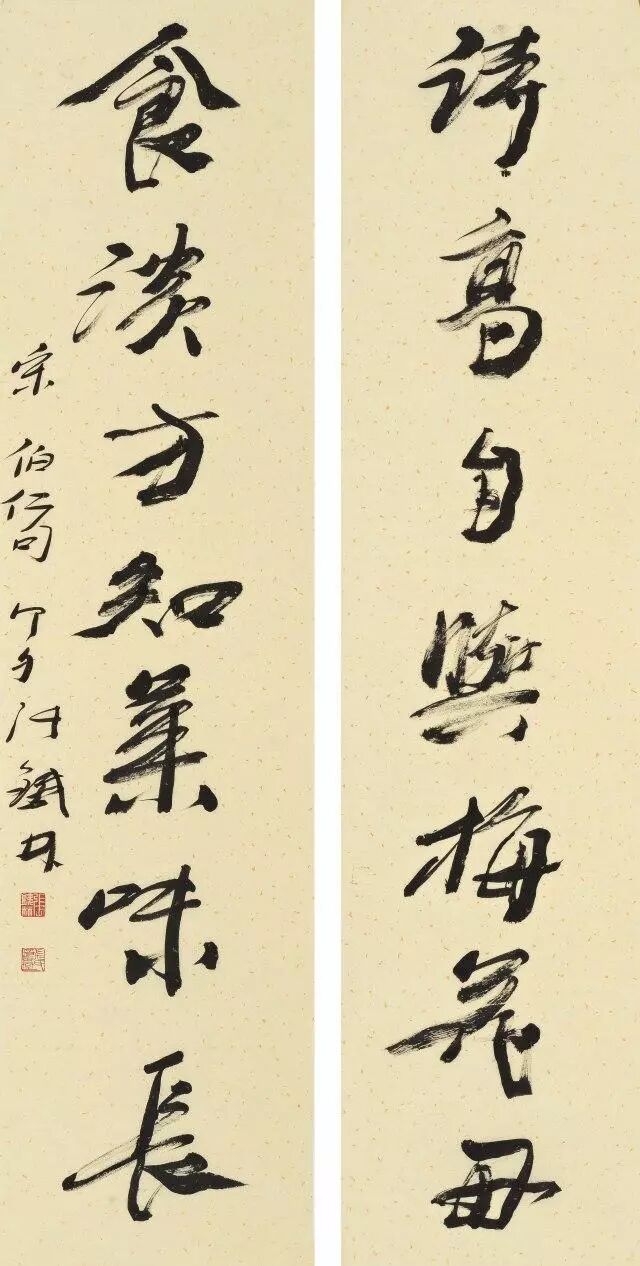 詩高自與梅花
食淡方知菜味長
宋伯仁句 張鐵林